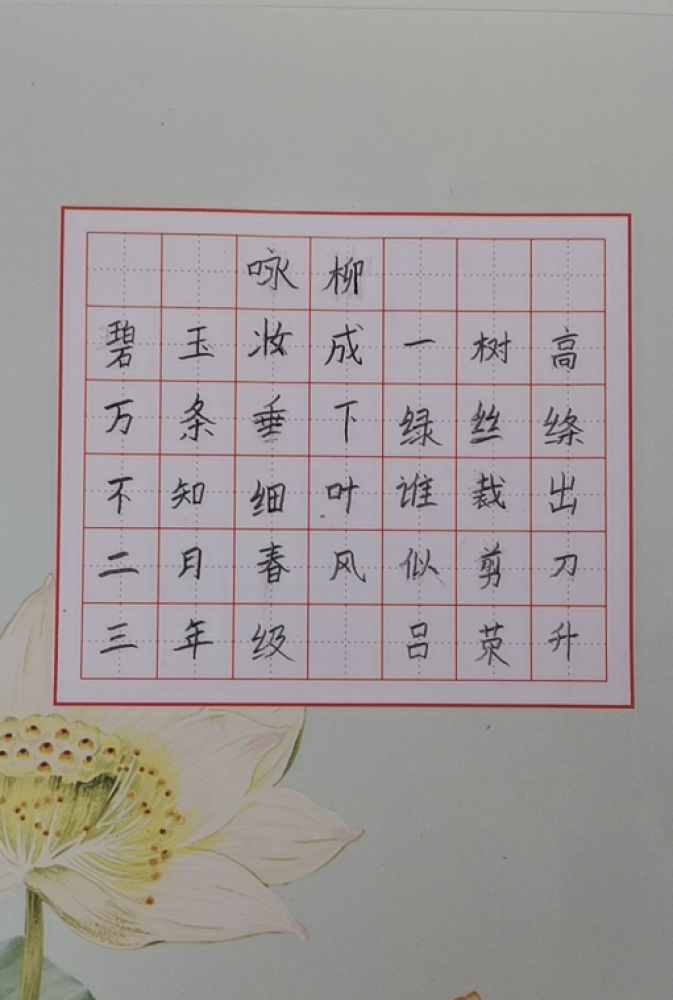 咏柳
碧玉妆成一树高
万条垂下绿丝绦
不知细叶谁裁出
二月春风似剪刀
三年级 吕荣升